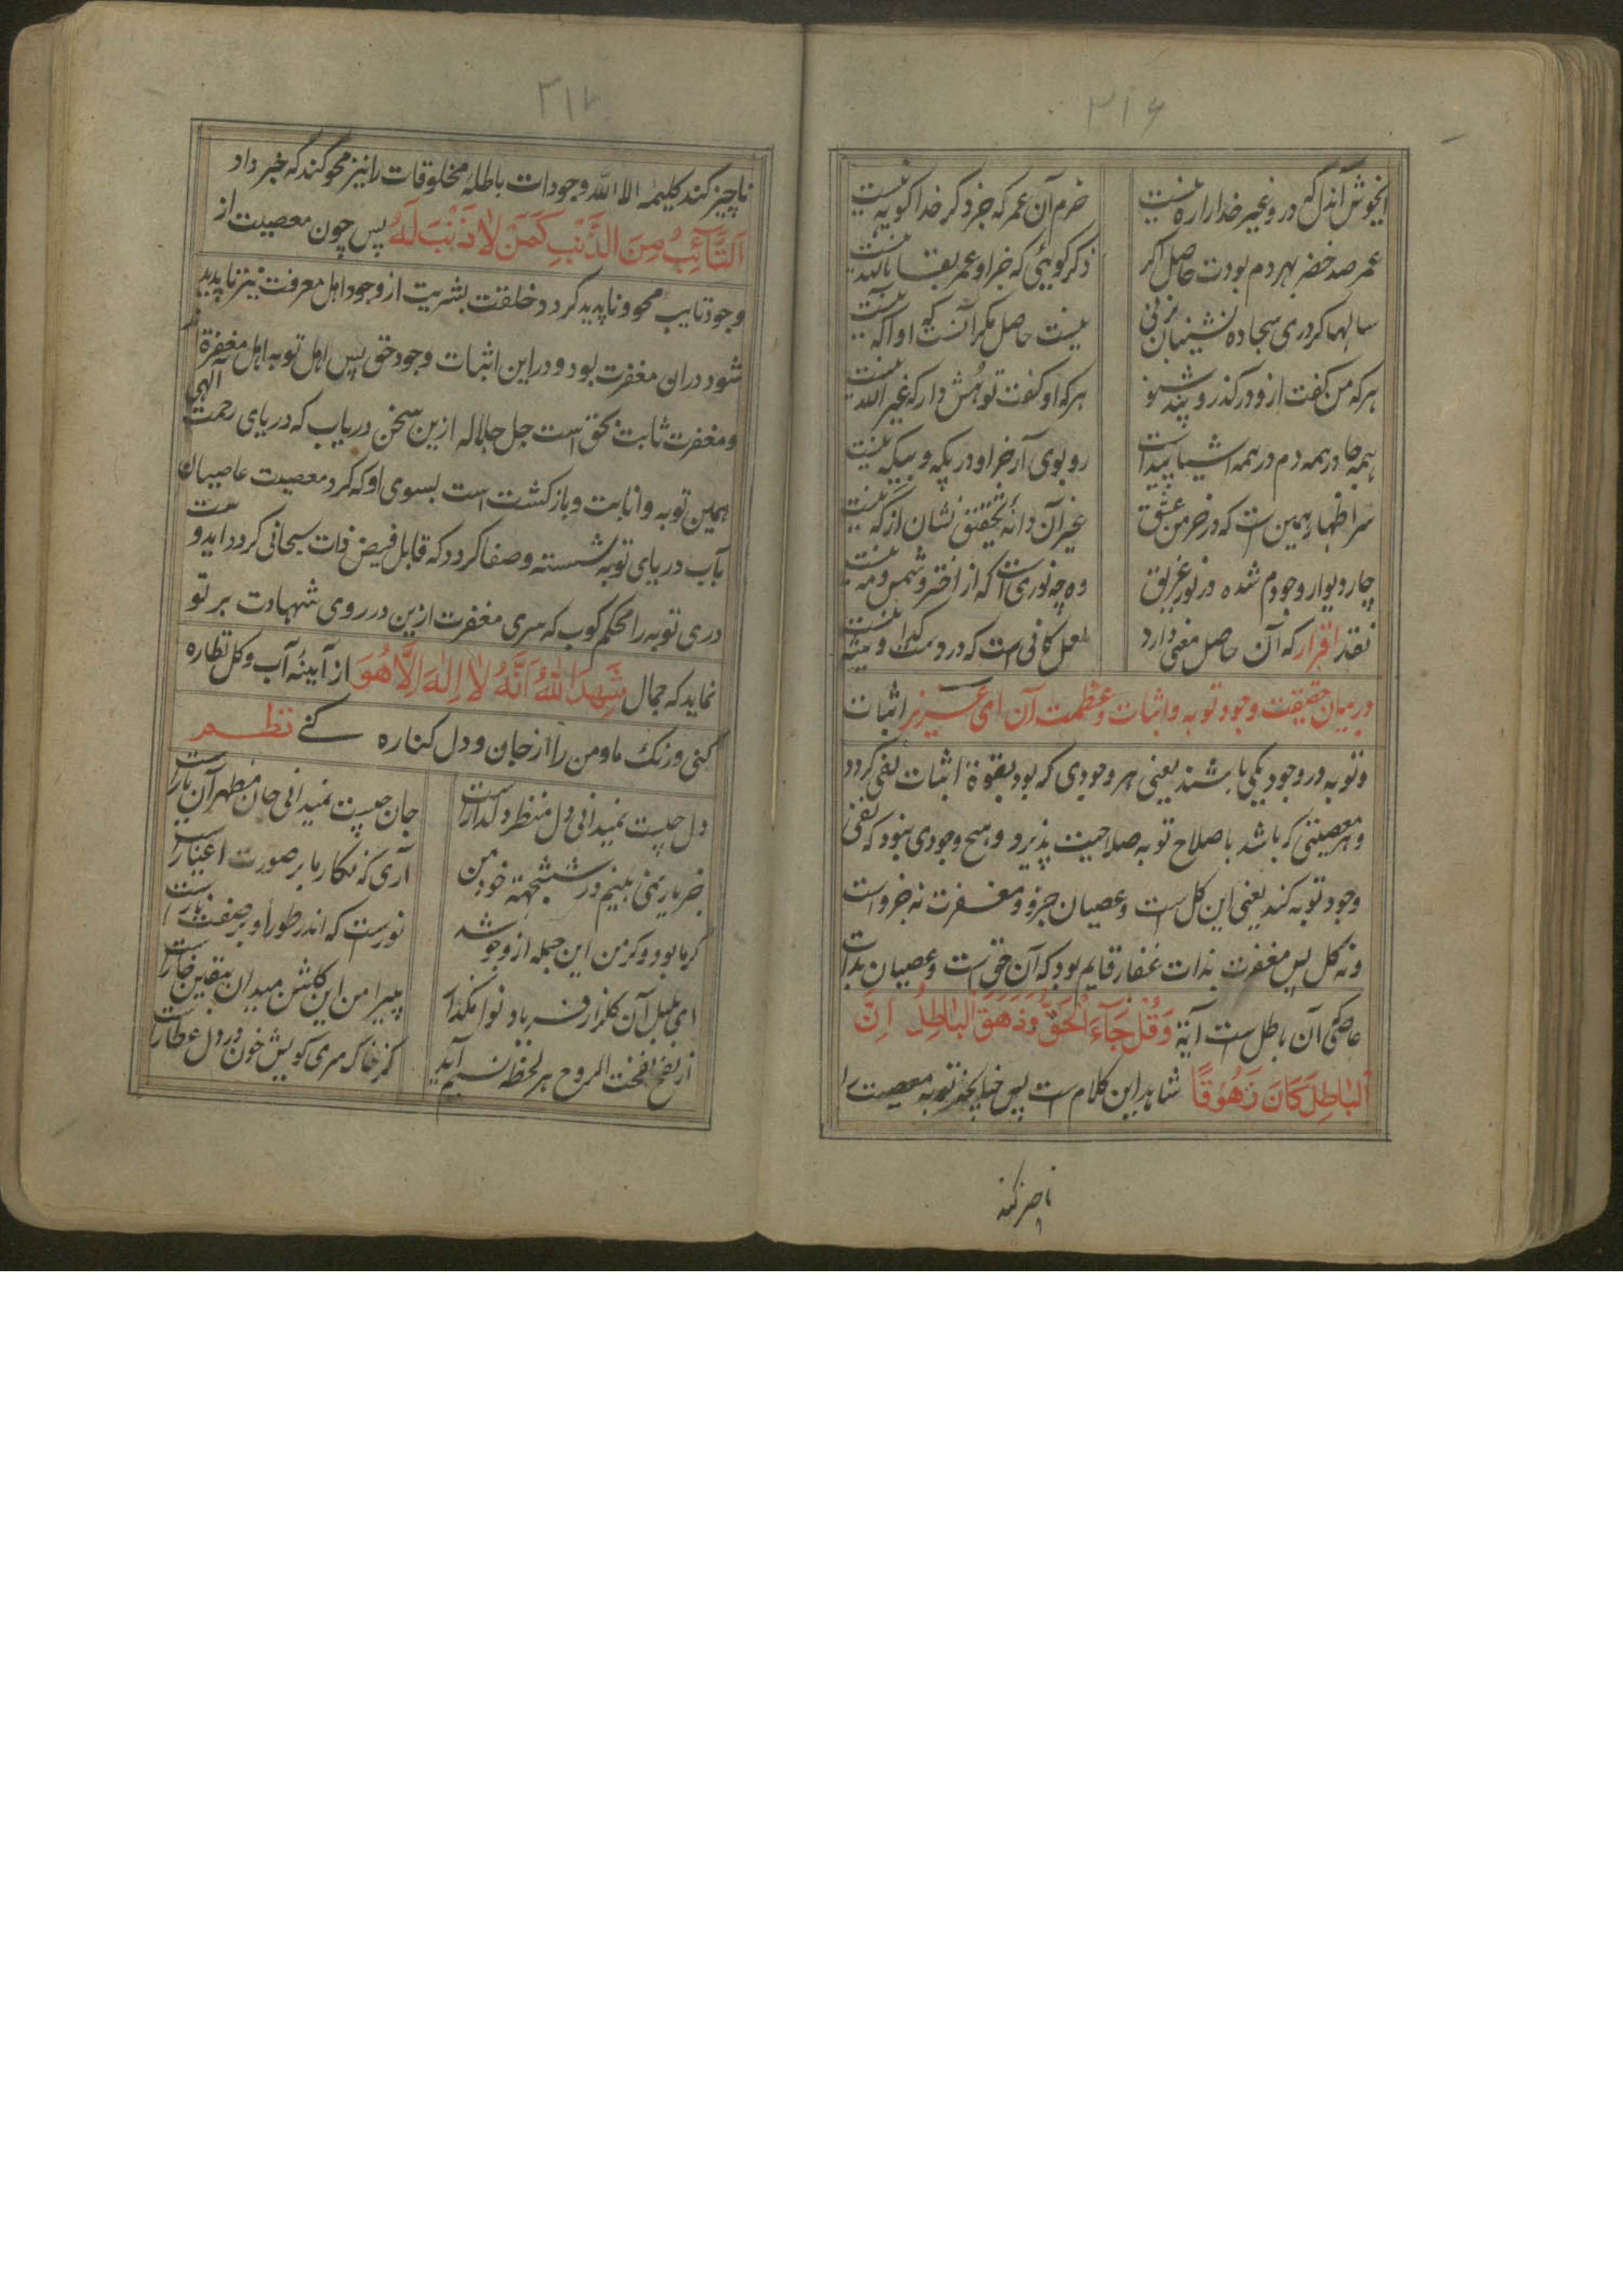 ۳۱۶
ایخوش آندل که درو غیر خدا را ره نیست
خرم آن عمر که جز ذکر خدا گویه نیست
عمر صد خضر بهر دم بودت حاصل اگر
ذکر گوئی که جز او عمر بقا بالله نیست
سالها گر دری سجاده نشینان بزنی
نیست حاصل مگر آنست که او آگه نیست
هر که من گفت ازو درگذر و پند شنو
هر که او گفت تو هش دار که غیر الله نیست
همه جا در همه دم در همه اشیا پیداست
رو بوی آر جز او در یکه و بیگه نیست
سر اظهار همین است که در خرمن عشق
غیر آن دانهٔ تحقیق نشان از که نیست
چار دیوار وجودم شده در نور غریق
وه چه نوری است که از اختر و شمس و مه نیست
نقد اقرار که آن حاصل معنی دارد
لعل کانی است که در دست گدا و شه نیست
در بیان حقیقت وجود توبه و اثبات و عظمت آن ای عزیز اثبات
و توبه در وجود یکی باشند یعنی هر وجودی که بود بقوة اثبات نفی گردد
و هر معصیتی که باشد باصلاح توبه صلاحیت پذیرد و هیچ وجودی نبود که نفی
وجود توبه کند یعنی این کل است و عصیان جزو و مغفرت نه جزو است
و نه کل پس مغفرت بذات غفار قایم بود که آن حق است و عصیان بذات
عاصی آن باطل است آیة وَقُلْ جَآءَ الْحَقُّ وَزَهَقَ الْبَاطِلُ اِنَّ
الْبَاطِلَ كَانَ زَهُوْقًا شاهد این کلام است پس چنانچه توبه معصیت را
ناچیز کند
۳۱۷
ناچیز کند کلیمه الا الله وجودات باطلهٔ مخلوقات را نیز محو کند که خبر داد
اَلتَّآئِبُ مِنَ الذَّنْبِ كَمَنْ لَا ذَنْبَ لَهُ پس چون معصیت از
وجود تایب محو و ناپدید گردد خلقت بشریت از وجود اهل معرفت نیز ناپدید
شود در ان مغفرت بود و در این اثبات وجود حق پس اهل توبه اهل مغفرة اند
و مغفرت ثابت بحق است جل جلاله ازین سخن دریاب که دریای رحمت الهی
همین توبه و انابت و بازگشت است بسوی او که گرد معصیت عاصیان
بآب دریای توبه شسته و صفا گردد که قابل فیض ذات سبحانی گردد اید و ست
دری توبه را محکم کوب که سری مغفرت ازین در روی شهادت بر تو
نماید که جمال شَهِدَ اللهُ اَنَّهُ لَا اِلٰهَ اِلَّا هُوَ از آیینه آب و گل نظاره
کنی و زنگ ما و من را از جان و دل کناره کنے نظم
دل چیست نمیدانی دل منظر دلدار است
جان چیست نمیدانی جان مظهر آن یار است
جز یار نمی بینم در ششجهة خود من
آری که نگار ما بر صورت اغیار است
گر ما بود و گر من این جمله ازو جو شد
نورست که اندر طور او بر صفت نار است
ای بلبل آن گلزار فریاد و نوا مگذار
پیرامن این گلشن میدان بیقین خار است
از نفخ نفخت الروح هر لحظه نسیم آید
کز خاک سری کویش خون در دل عطار است